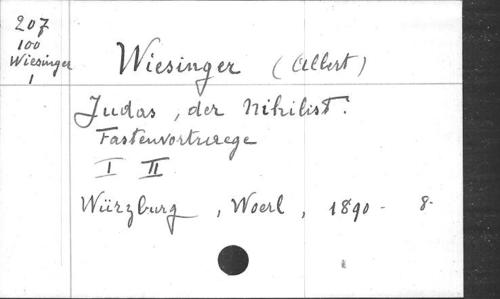 207
100
Wiesinger
1
Wiesinger (Albert)
Judas, der Nihilist.
Fastenvortraege
I II
Würzburg, Woerl, 1890 - 8.